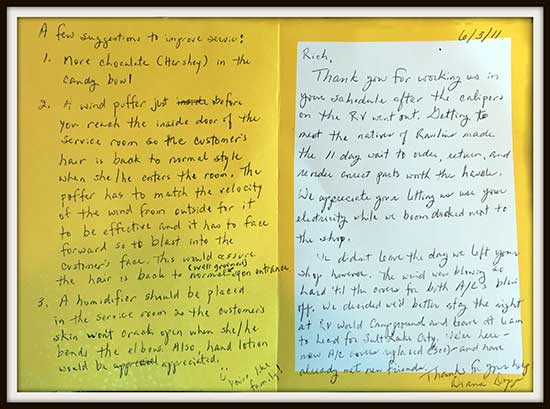 A few suggestions to improve service:
1. More chocolate (Hershey) in the
candy bowl
2. A wind puffer just inside before
you reach the inside door of the
service room so the customer's
hair is back to normal style
when she/he enters the room. The
puffer has to match the velocity
of the wind from outside for it
to be effective and it has to face
forward so to blast into the
customer's face. This would assure
the hair is back to (well groomed) normal upon entrance
3. A humidifier should be placed
in the service room so the customer's
skin won't crack open when she/he
bends the elbow. Also, hand lotion
would be appreciated.
You're like
family!
6/3/11
Rich,
Thank you for working us in
your schedule after the calipers
on the RV went out. Getting to
meet the natives of Rawlins made
the 11 day wait to order, return, and
reorder correct parts worth the hassle.
We appreciate you letting us use your
electricity while we boondocked next to
the shop.
We didn't leave the day we left your
shop however. The wind was blowing so
hard 'til the cover for both A/Cs blew
off. We decided we'd better stay the night
at RV World Campground and leave at 6am
to head for Salt Lake City. We're here -
new A/C cover replaced and have
already met new friends.
Thanks for your help
Diana